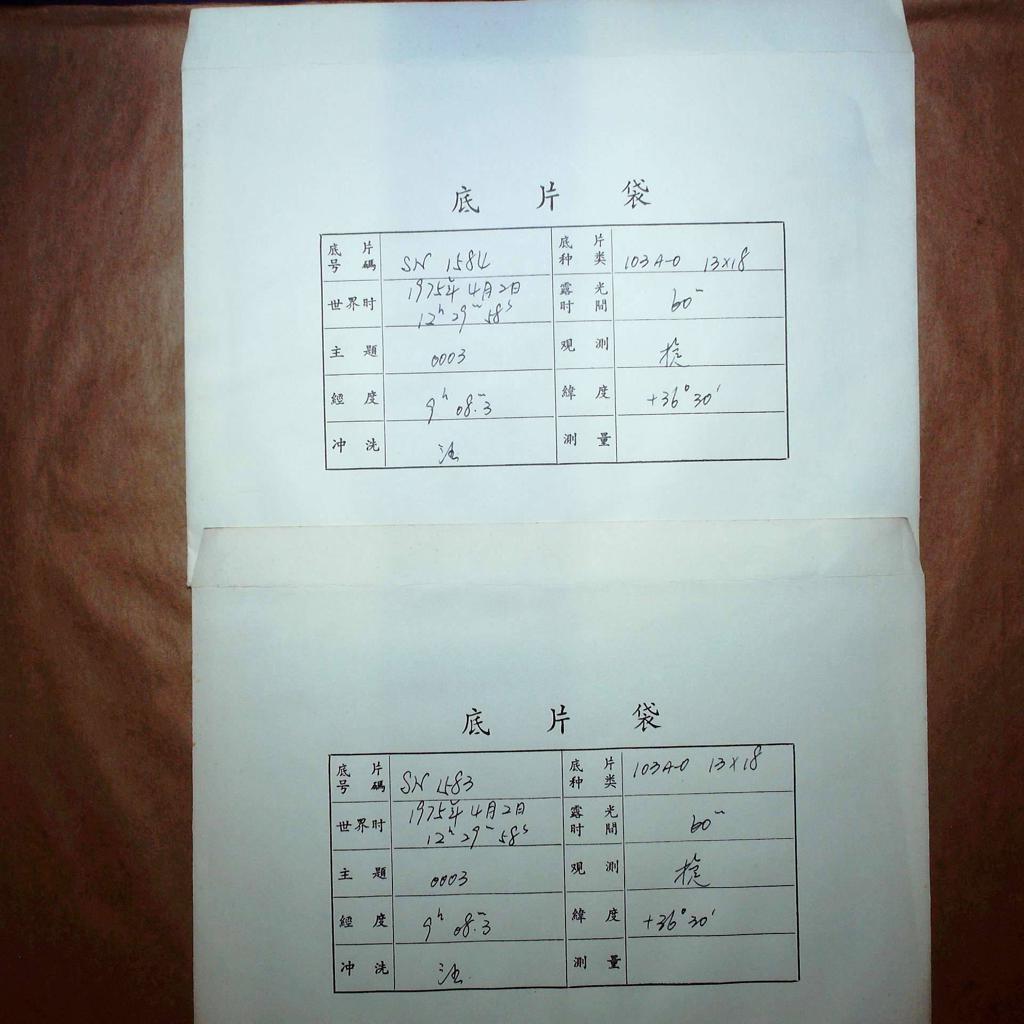 底片袋
底片号碼 SN 1584 底片种类 103A-O 13×18
世界时 1975年4月2日 露光时間 60ᵐ
12ʰ 29ᵐ 58ˢ
主題 0003 观測
經度 9ʰ 08ᵐ.3 緯度 +36°30′
冲洗 測量
底片袋
底片号碼 SN 1583 底片种类 103A-O 13×18
世界时 1975年4月2日 露光时間 60ᵐ
12ʰ 29ᵐ 58ˢ
主題 0003 观測
經度 9ʰ 08ᵐ.3 緯度 +36°30′
冲洗 測量